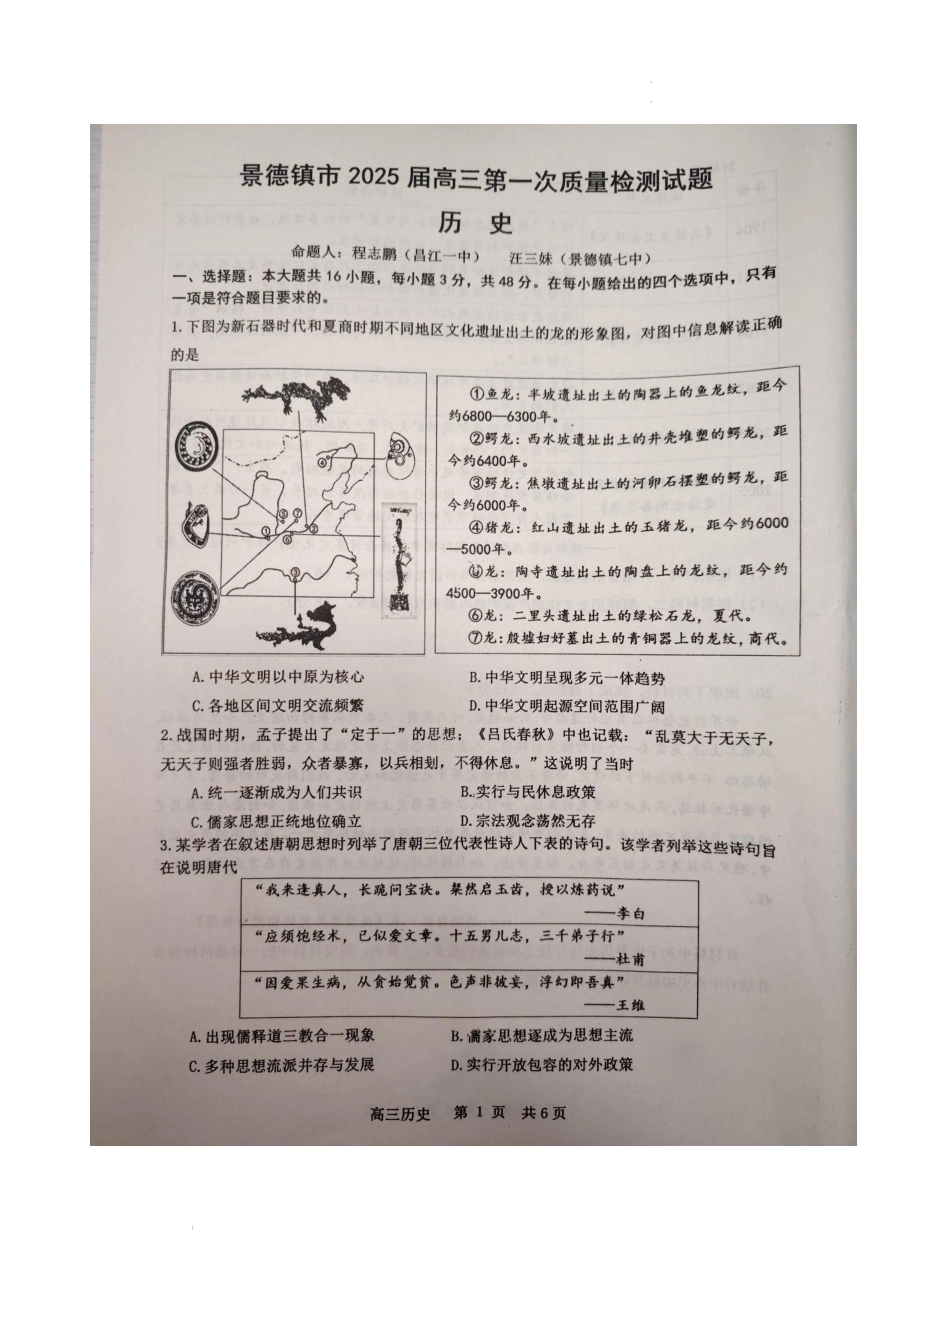 景德镇市 2025 届高三第一次质量检测试题
历 史
命题人：程志鹏（昌江一中） 汪三妹（景德镇七中）
一、选择题：本大题共 16 小题，每小题 3 分，共 48 分。在每小题给出的四个选项中，只有
一项是符合题目要求的。
1.下图为新石器时代和夏商时期不同地区文化遗址出土的龙的形象图，对图中信息解读正确
的是
①鱼龙：半坡遗址出土的陶器上的鱼龙纹，距今
约6800—6300年。
②鳄龙：西水坡遗址出土的蚌壳堆塑的鳄龙，距
今约6400年。
③鳄龙：焦墩遗址出土的河卵石摆塑的鳄龙，距
今约6000年。
④猪龙：红山遗址出土的玉猪龙，距今约6000
—5000年。
龙：陶寺遗址出土的陶盘上的龙纹，距今约
4500—3900年。
⑥龙：二里头遗址出土的绿松石龙，夏代。
⑦龙：殷墟妇好墓出土的青铜器上的龙纹，商代。
A.中华文明以中原为核心 B.中华文明呈现多元一体趋势
C.各地区间文明交流频繁 D.中华文明起源空间范围广阔
2.战国时期，孟子提出了“定于一”的思想；《吕氏春秋》中也记载：“乱莫大于无天子，
无天子则强者胜弱，众者暴寡，以兵相刬，不得休息。”这说明了当时
A.统一逐渐成为人们共识 B.实行与民休息政策
C.儒家思想正统地位确立 D.宗法观念荡然无存
3.某学者在叙述唐朝思想时列举了唐朝三位代表性诗人下表的诗句。该学者列举这些诗句旨
在说明唐代
“我来逢真人，长跪问宝诀。粲然启玉齿，授以炼药说”
——李白
“应须饱经术，已似爱文章。十五男儿志，三千弟子行”
——杜甫
“因爱果生病，从贪始觉贫。色声非彼妄，浮幻即吾真”
——王维
A.出现儒释道三教合一现象 B.儒家思想逐成为思想主流
C.多种思想流派并存与发展 D.实行开放包容的对外政策
高三历史 第 1 页 共 6 页